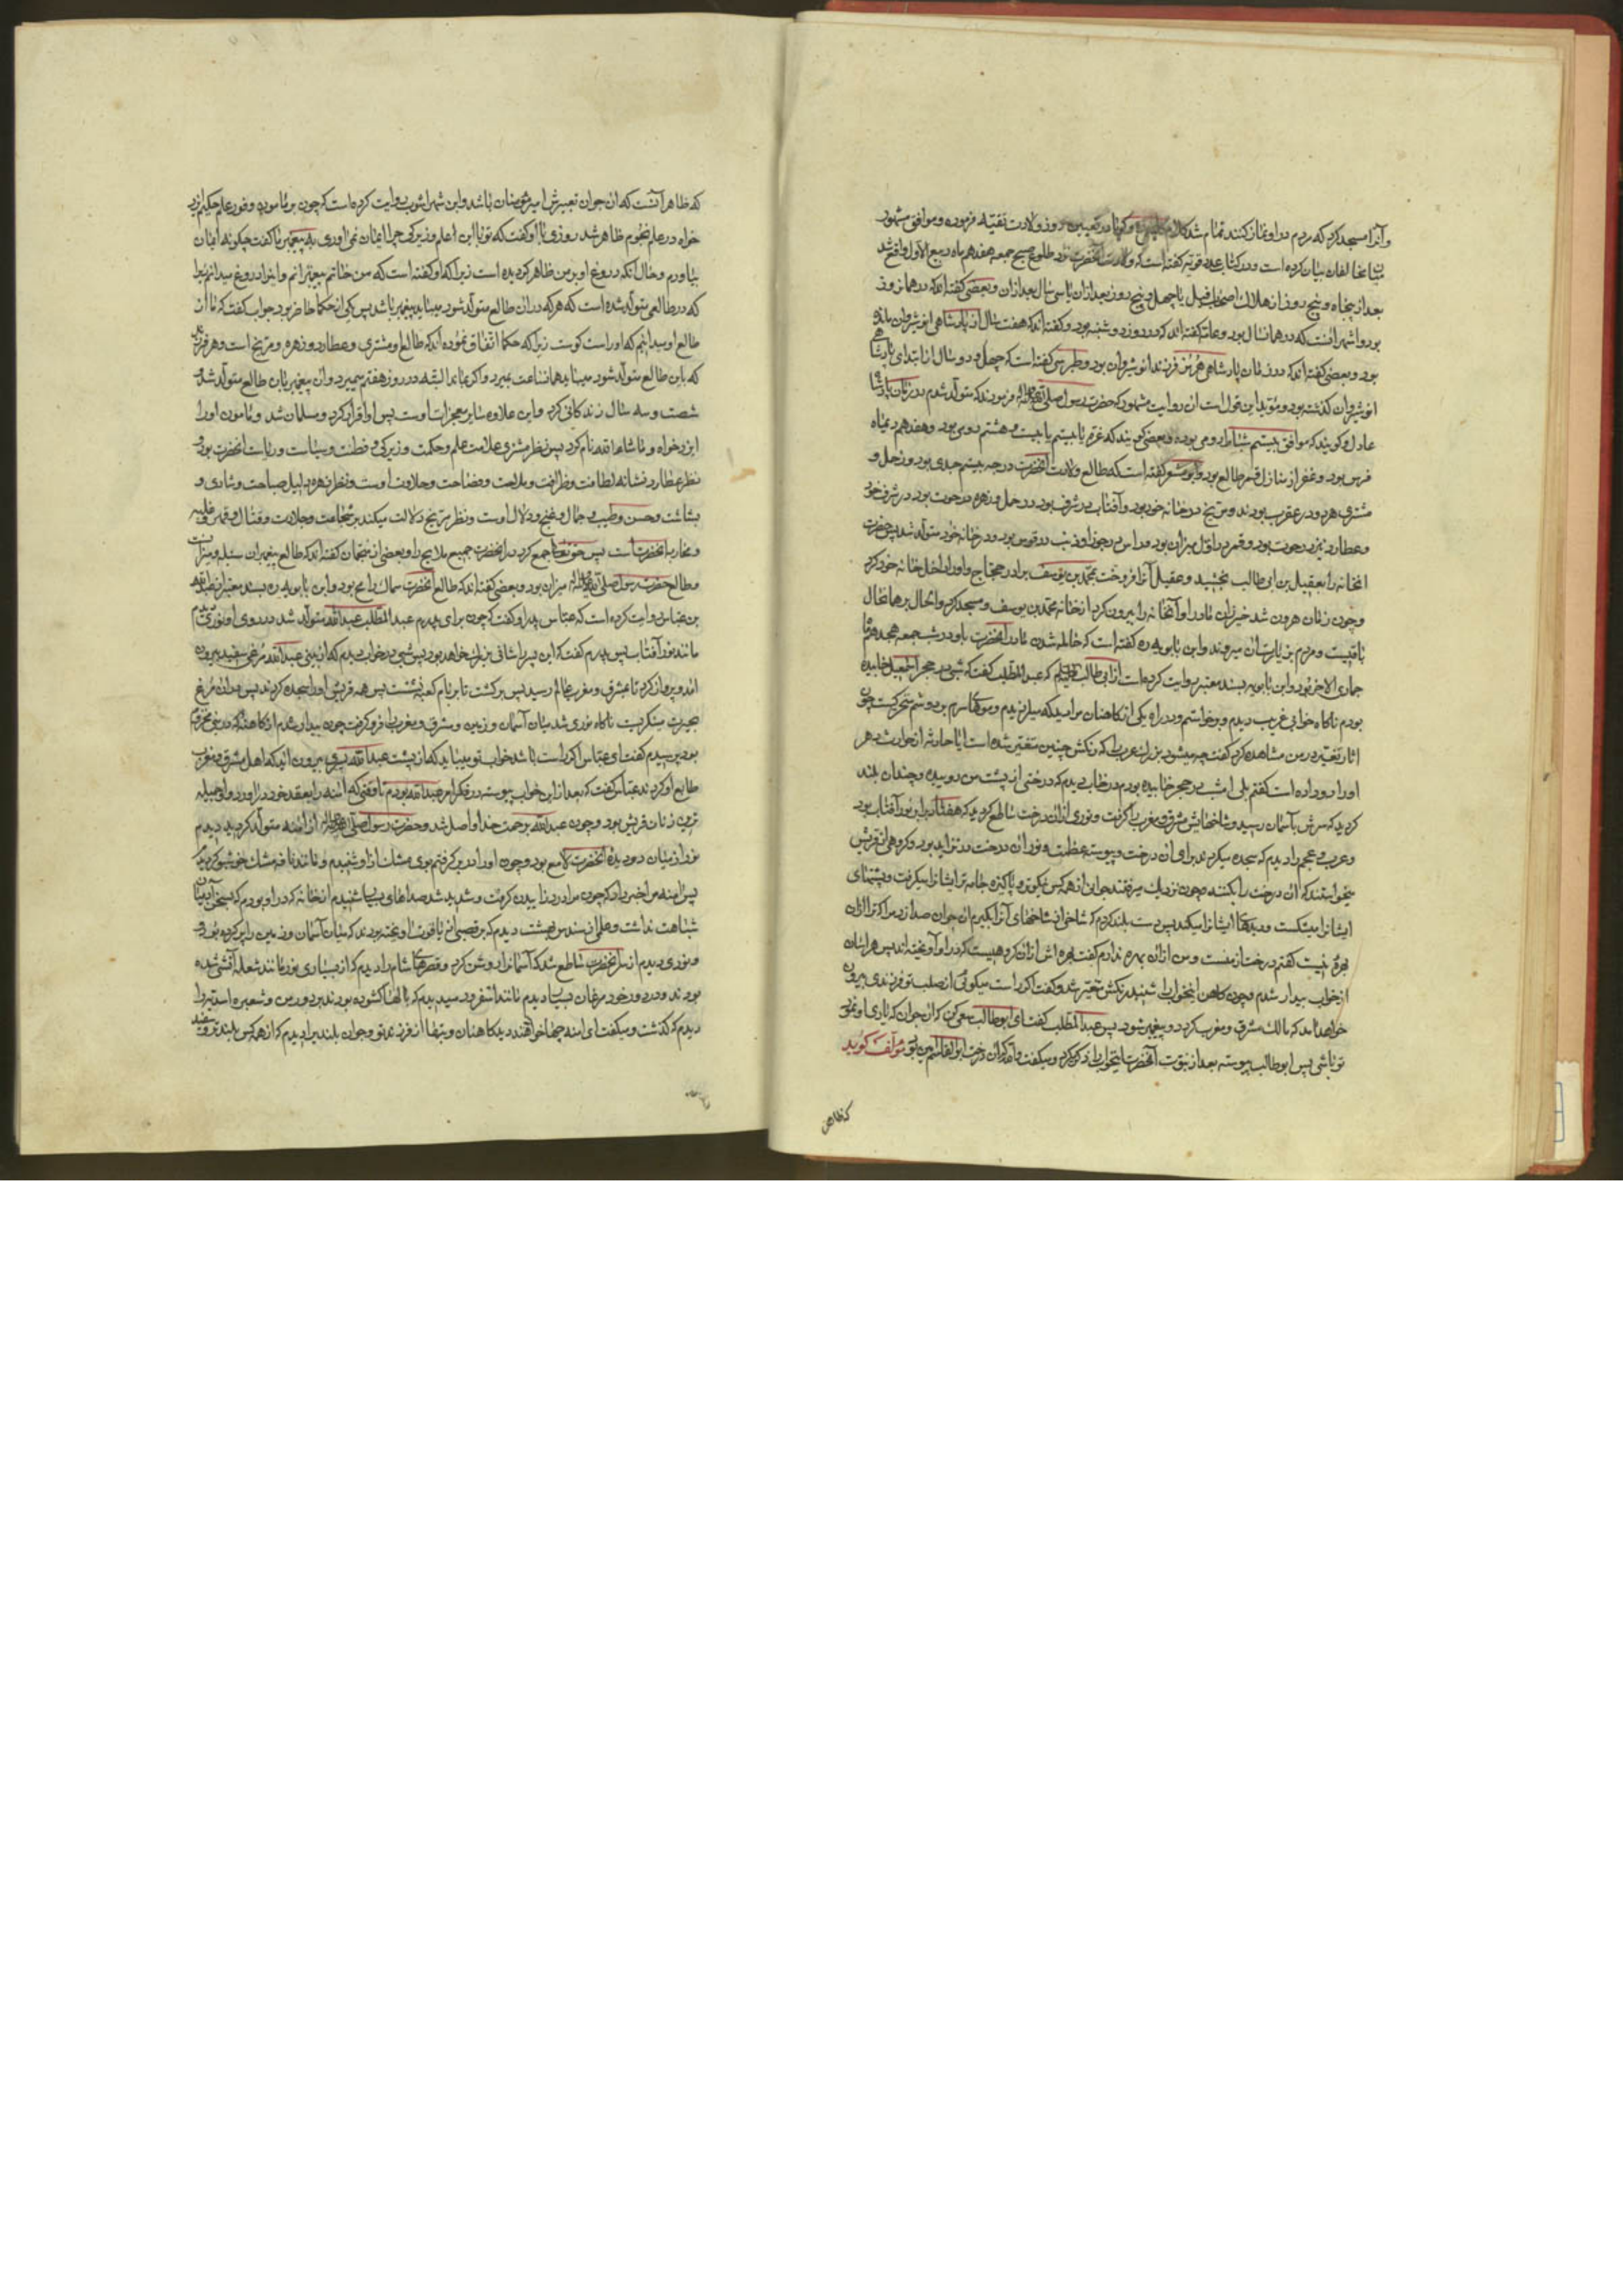 وآنرا مسجد کرد که مردم در او نماز کنند تمام شد کلام کلینی و گویا در تعیین روز ولادت تقیه فرموده و موافق مشهور
میان مخالفان بیان کرده است و در کتاب عدد قویه گفته است که ولادت آنحضرت نزد طلوع صبح جمعه هفدهم ماه ربیع الاول واقع شد
بعد از پنجاه و پنج روز از هلاک اصحاب فیل یا چهل و پنج روز بعد از آن یا سی سال بعد از آن و بعضی گفته اند که در همانروز
بود و اشهر آنست که در همانسال بود و عامه گفته اند که در روز دوشنبه بود و گفته اند که هفت سال از پادشاهی انوشیروان مانده
بود و بعضی گفته اند که در زمان پادشاهی هرمز فرزند انوشیروان بود و طبرسی گفته است که چهل و دو سال از ابتدای پادشاهی
انوشیروان گذشته بود و مؤید این قول است آن روایت مشهور که حضرت رسول صلی الله علیه وآله فرمودند که متولد شدم در زمان پادشاه
عادل و گویند که موافق بیستم شباط رومی بوده و بعضی گویند که غره یا بیستم یا بیست و هشتم دوی بود و هفدهم دیماه
فرس بود و غفر از منازل قمر طالع بود و ابو معشر گفته است که طالع ولادت آنحضرت درجه بیستم جدی بود و زحل و
مشتری هر دو در عقرب بودند و مریخ در خانه خود بود و آفتاب در شرف بود در حمل و زهره در حوت بود در شرف خود
و عطارد نیز در حوت بود و قمر در اول میزان بود و راس در جوزا و ذنب در قوس بود و در خانه خود متولد شد پس حضرت
آنخانه را بعقیل بن ابی طالب بخشید و عقیل آنرا فروخت بمحمد بن یوسف برادر حجاج و او را داخل خانه خود کرد
و چون زمان هرون شد خیزران مادر او آنخانه را بیرون کرد از خانه محمد بن یوسف و مسجد کرد و الحال بر همان حال
باقیست و مردم بزیارت آن میروند و ابن بابویه ره گفته است که حامله شدن مادر آنحضرت باو در شب جمعه هجدهم ماه
جمادی الاخر بود و ابن بابویه بسند معتبر روایت کرده است از ابی طالب که عبد المطلب گفت که شبی در حجر اسمعیل خوابیده
بودم ناگاه خوابی غریب دیدم و برخواستم و در راه یکی از کاهنان مرا دید که میلرزیدم و موهای سرم بر دوشم متحرکست چون
آثار تغیر در من مشاهده کرد گفت چه میشود بزرگ عرب را که رنگش چنین متغیر شده است آیا حادثه از حوادث دهر
او را رو داده است گفتم بلی امشب در حجر خوابیده بودم در خواب دیدم که درختی از پشت من روییده و چندان بلند
گردید که سرش بآسمان رسید و شاخهایش مشرق و مغرب را گرفت و نوری از آن درخت ساطع گردید که هفتاد برابر نور آفتاب بود
و عرب و عجم را دیدم که سجده میکردند برای آن درخت و پیوسته عظمت و نور آن درخت در تزاید بود و گروهی از قریش
میخواستند که آن درخت را بکنند و چون نزدیک میرفتند جوانی از همه کس نیکوتر و پاکیزه جامه تر ایشانرا میگرفت و پشتهای
ایشانرا میشکست و دیدهای ایشانرا میکند پس دست بلند کردم که شاخی از شاخهای آنرا بگیرم آن جوان صدا زد مرا که ترا از آن
بهره نیست گفتم درخت از منست و من از آن بهره ندارم گفت بهره اش از آن گروهیست که در او آویخته اند پس هراسان
از خواب بیدار شدم و چون کاهن اینخواب را شنید رنگش متغیر شد و گفت اگر راست میگوئی از صلب تو فرزندی بیرون
خواهد آمد که مالک مشرق و مغرب گردد و پیغمبر شود پس عبد المطلب گفت ای ابو طالب سعی کن که آن جوان که یاری او نمود
تو باشی پس ابو طالب پیوسته بعد از نبوت آنحضرت اینخواب را ذکر میکرد و میگفت والله که آن درخت ابو القاسم امین بود مؤلف گوید
که ظاهر
که ظاهر آنست که آن جوان تعبیرش امیر مؤمنان باشد و ابن شهر اشوب روایت کرده است که چون بر مامون وفور علم حکیم ایزد
خواه در علم نجوم ظاهر شد روزی باو گفت که تو با این علم و زیرکی چرا ایمان نمی آوری به پیغمبر ما گفت چگونه ایمان
بیاورم و حال آنکه دروغ او بر من ظاهر گردیده است زیرا که او گفته است که من خاتم پیغمبرانم و این را دروغ میدانم زیرا
که در طالعی متولد شده است که هر که در آن طالع متولد شود میباید پیغمبر باشد پس یکی از حکما حاضر بود جواب گفت که ما از
طالع او میدانیم که او راست گوست زیرا که حکما اتفاق نموده اند که طالع او مشتری و عطارد و زهره و مریخ است و هر فرزند
که باین طالع متولد شود میباید همانساعت بمیرد و اگر بماند البته در روز هفتم میمیرد و آن پیغمبر باین طالع متولد شد و
شصت و سه سال زندگانی کرد و این علاوه سایر معجزات اوست پس او اقرار کرد و مسلمان شد و مامون او را
ایزد خواه و ماشاءالله نام کرد پس نظر مشتری علامت علم و حکمت و زیرکی و فطنت و سیاست و ریاست آنحضرت بود و
نظر عطارد نشانه لطافت و ظرافت و ملاحت و فصاحت و حلاوت اوست و نظر زهره دلیل صباحت و شادی و
بشاشت و حسن و طیب و جمال و غنج و دلال اوست و نظر مریخ دلالت میکند بر شجاعت و جلادت و قتال و قهر و غلبه
و محاربه آنحضرت است پس حق تعالی جمع کرد در آنحضرت جمیع مدایح را و بعضی از منجمان گفته اند که طالع پیغمبران سنبله و میزانست
و طالع حضرت رسول صلی الله علیه وآله میزان بود و بعضی گفته اند که طالع آنحضرت سماک رامح بود و ابن بابویه ره بسند معتبر از عبد الله
بن عباس روایت کرده است که عباس پدر او گفت که چون برای پدرم عبد المطلب عبد الله متولد شد در روی او نوری دیدم
مانند نور آفتاب پس پدرم گفت که این پسر را شانی بزرگ خواهد بود پس شبی در خواب دیدم که از بینی عبد الله مرغی سفید بیرون
آمد و پرواز کرد تا بمشرق و مغرب عالم رسید پس برگشت تا بر بام کعبه نشست پس همه قریش او را سجده کردند پس در آن مرغ
بحیرت مینگریست ناگاه نوری شد میان آسمان و زمین و مشرق و مغرب را فرو گرفت چون بیدار شدم از کاهنه که در بنی مخزوم
بود پرسیدم گفت ای عباس اگر راست باشد خواب تو میباید که از پشت عبد الله پسری بیرون آید که اهل مشرق و مغرب
طایع او گردند عباس گفت که بعد از این خواب پیوسته در فکر امر عبد الله بودم تا وقتی که آمنه را بعقد خود در آورد و او جمیله
ترین زنان قریش بود و چون عبد الله برحمت خدا واصل شد و حضرت رسول صلی الله علیه وآله از آمنه متولد گردید دیدم
نور از میان دو دیده آنحضرت لامع بود و چون او را در بر گرفتم بوی مشک از او شنیدم و مانند نافه مشک خوشبو گردیدم
پس آمنه مرا خبر داد که چون مرا درد زاییدن گرفت و شدید شد صداهای بسیار شنیدم از خانه که در او بودم که بسخن آدمیان
شباهت نداشت و علمی از سندس بهشت دیدم که بر قصبی از یاقوت آویخته بودند که میان آسمان و زمین را پر کرده بود و
و نوری دیدم از سر آنحضرت ساطع شد که آسمانرا روشن کرد و قصرهای شام را دیدم که از بسیاری نور مانند شعله آتشی شده
بودند و در دور خود مرغان بسیار دیدم مانند اسفرود
دیدم که گذشت و میگفت ای آمنه چها خواهند دید کاهنان و بتها از فرزند تو و جوان بلندی را دیدم که از همه کس بلندتر و سفید